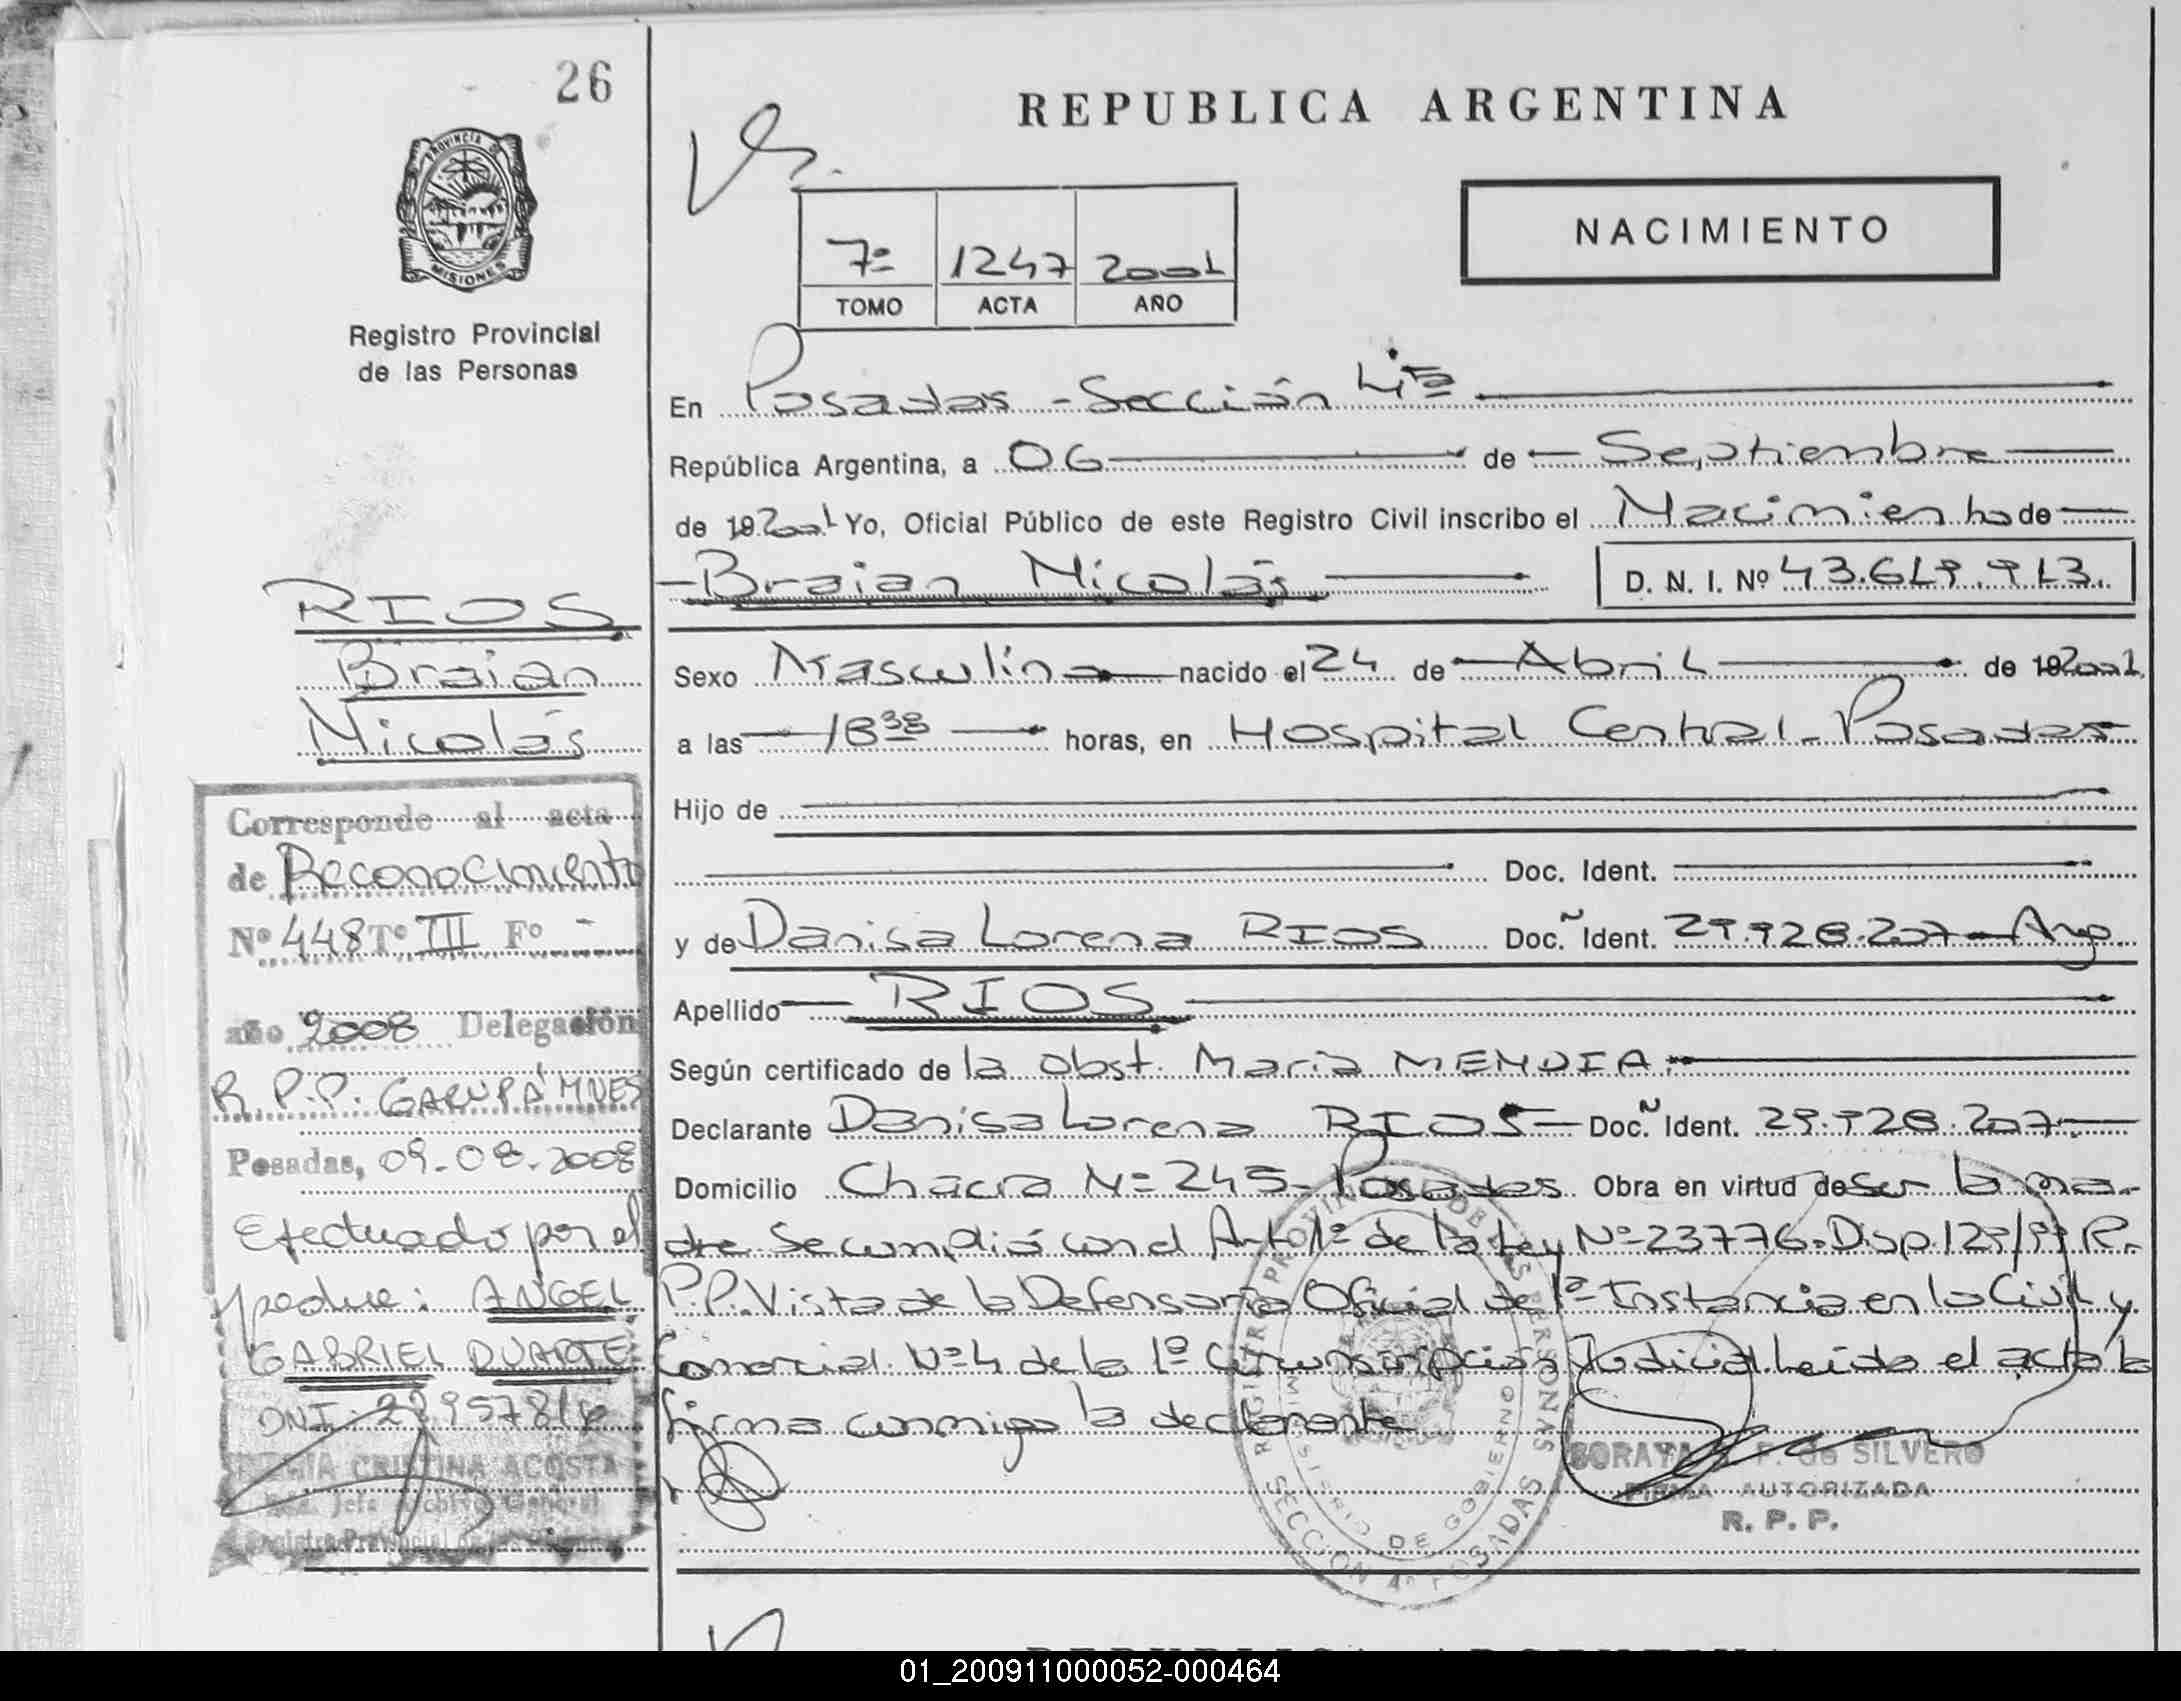 26
REPUBLICA ARGENTINA
PROVINCIA DE
MISIONES
Registro Provincial
de las Personas
NACIMIENTO
7º 1247 2001
TOMO ACTA AÑO
En Posadas - Sección 4ta
República Argentina, a 06 de Septiembre
de 192001 Yo, Oficial Público de este Registro Civil inscribo el Nacimiento de
Braian Nicolás D. N. I. Nº 43.619.913.
RIOS
Braian
Nicolás
Sexo Masculino nacido el 24 de Abril de 192001
a las 18 38 horas, en Hospital Central - Posadas
Hijo de
Doc. Ident.
y de Danisa Lorena RIOS Doc. Ident. 29.928.207 - Arg
Apellido RIOS
Según certificado de la Obst. Maria MENDIA.
Declarante Danisa Lorena RIOS - Doc. Ident. 29.928.207.
Domicilio Chacra Nº 245 - Posadas Obra en virtud de ser la ma-
dre. Se cumplió con el Art. 1º de la Ley Nº 23776 - Disp. 129/99 R.
P.P. Vista de la Defensoría Oficial de 1ª Instancia en lo Civil y
Comercial Nº 4 de la 1º Circunscripción Judicial. Leída el acta la
firma conmigo la declarante
Corresponde al acta
de Reconocimiento
Nº 448 Tº III Fº -
año 2008 Delegación
R.P.P. GARUPÁ MNES
Posadas, 09-08-2008
Efectuado por el
padre: ANGEL
GABRIEL DUARTE
DNI:
MARIA CRISTINA ACOSTA
Jefa Archivo General
Registro Provincial de las Personas
REGISTRO PROVINCIAL DE LAS PERSONAS
MINISTERIO DE GOBIERNO
SECCION 4º POSADAS
SORAYA F. de SILVERO
FIRMA AUTORIZADA
R. P. P.
REPUBLICA ARGENTINA
01_200911000052-000464